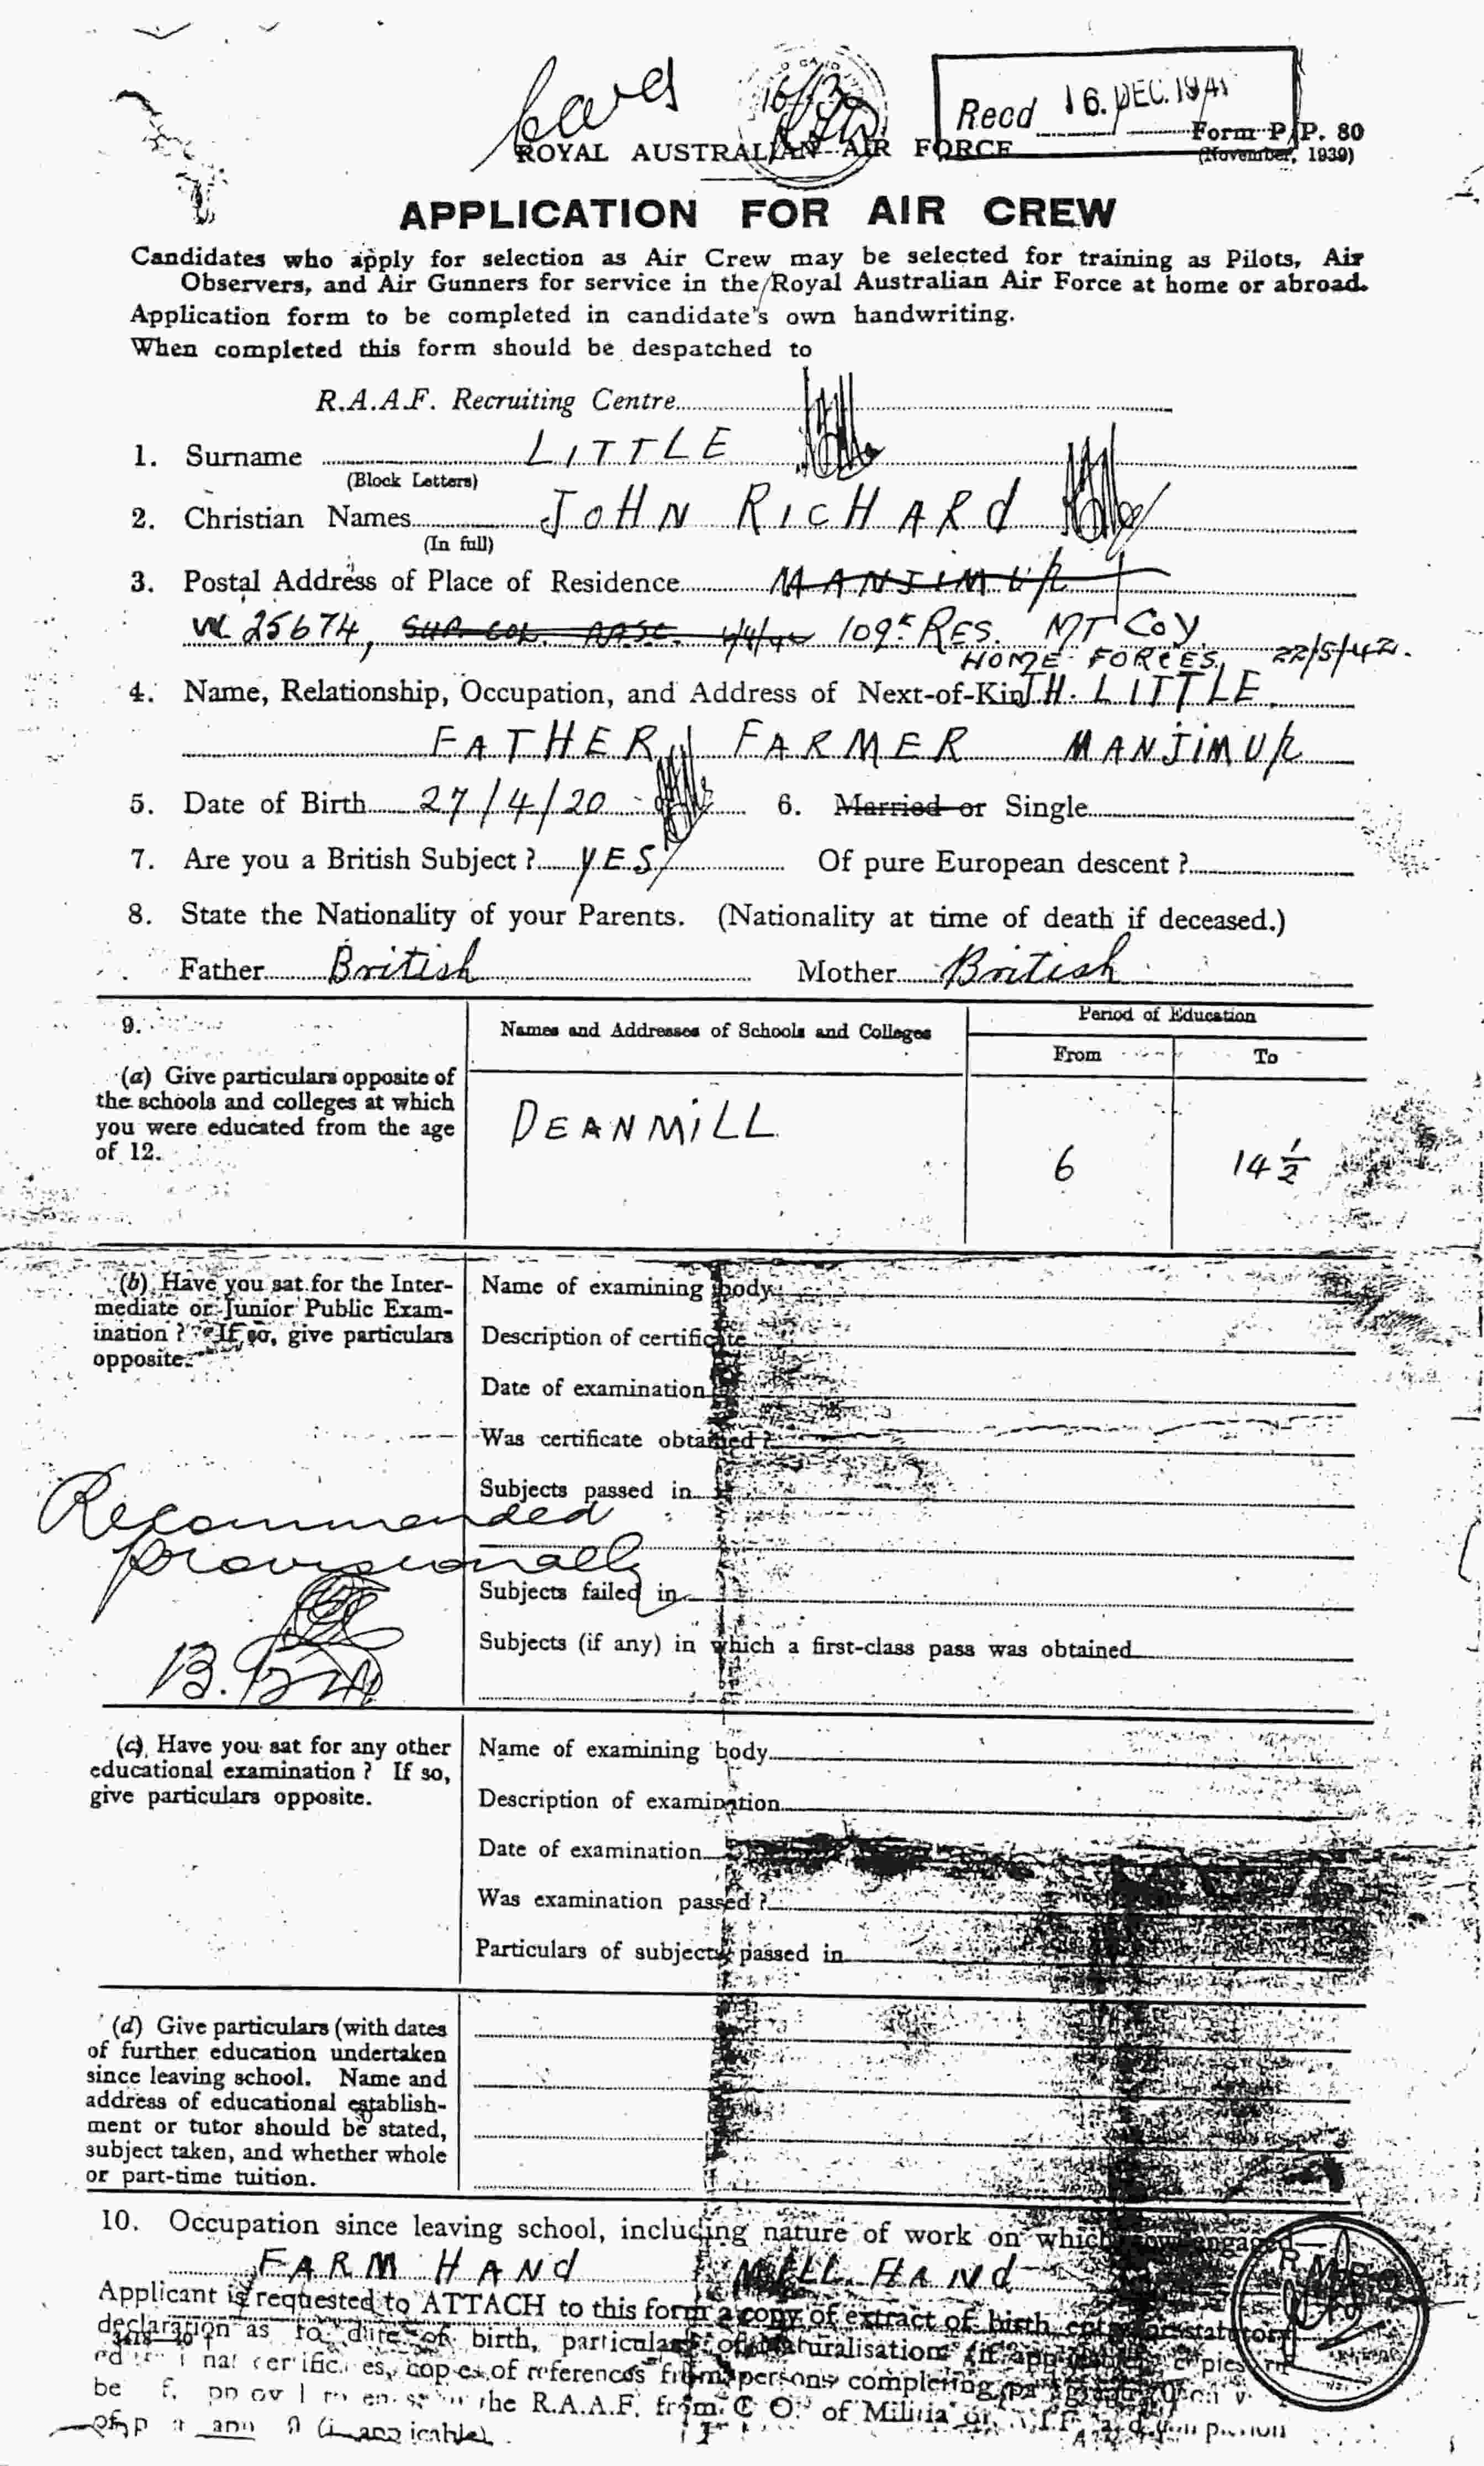 Recd 16. DEC. 1941
Form P/P. 80
(November, 1939)
ROYAL AUSTRALIAN AIR FORCE
APPLICATION FOR AIR CREW
Candidates who apply for selection as Air Crew may be selected for training as Pilots, Air
Observers, and Air Gunners for service in the Royal Australian Air Force at home or abroad.
Application form to be completed in candidate's own handwriting.
When completed this form should be despatched to
R.A.A.F. Recruiting Centre
1. Surname LITTLE
(Block Letters)
2. Christian Names JOHN RICHARd
(In full)
3. Postal Address of Place of Residence MANJIMUP
W 25674, 109th RES. MT COY
HOME FORCES. 22/5/42.
4. Name, Relationship, Occupation, and Address of Next-of-Kin J.H. LITTLE.
FATHER, FARMER MANJiMUP
5. Date of Birth 27/4/20 6. Married or Single
7. Are you a British Subject ? YES Of pure European descent ?
8. State the Nationality of your Parents. (Nationality at time of death if deceased.)
Father British Mother British
9.
Names and Addresses of Schools and Colleges
Period of Education
From To
(a) Give particulars opposite of
the schools and colleges at which
you were educated from the age
of 12.
DEANMiLL
6
14 1/2
(b) Have you sat for the Inter-
mediate or Junior Public Exam-
ination ? If so, give particulars
opposite.
Name of examining body
Description of certificate
Date of examination
Was certificate obtained ?
Subjects passed in
Recommended
provisionally
Subjects failed in
Subjects (if any) in which a first-class pass was obtained
(c) Have you sat for any other
educational examination ? If so,
give particulars opposite.
Name of examining body
Description of examination
Date of examination
Was examination passed ?
Particulars of subjects passed in
(d) Give particulars (with dates
of further education undertaken
since leaving school. Name and
address of educational establish-
ment or tutor should be stated,
subject taken, and whether whole
or part-time tuition.
10. Occupation since leaving school, including nature of work on which now engaged
FARM HANd MILL HANd
Applicant is requested to ATTACH to this form a copy of extract of birth entry or statutory
declaration as to date of birth, particulars of naturalisation (if applicable), copies of
copies of references from persons completing
the R.A.A.F. from C.O. of Militia or